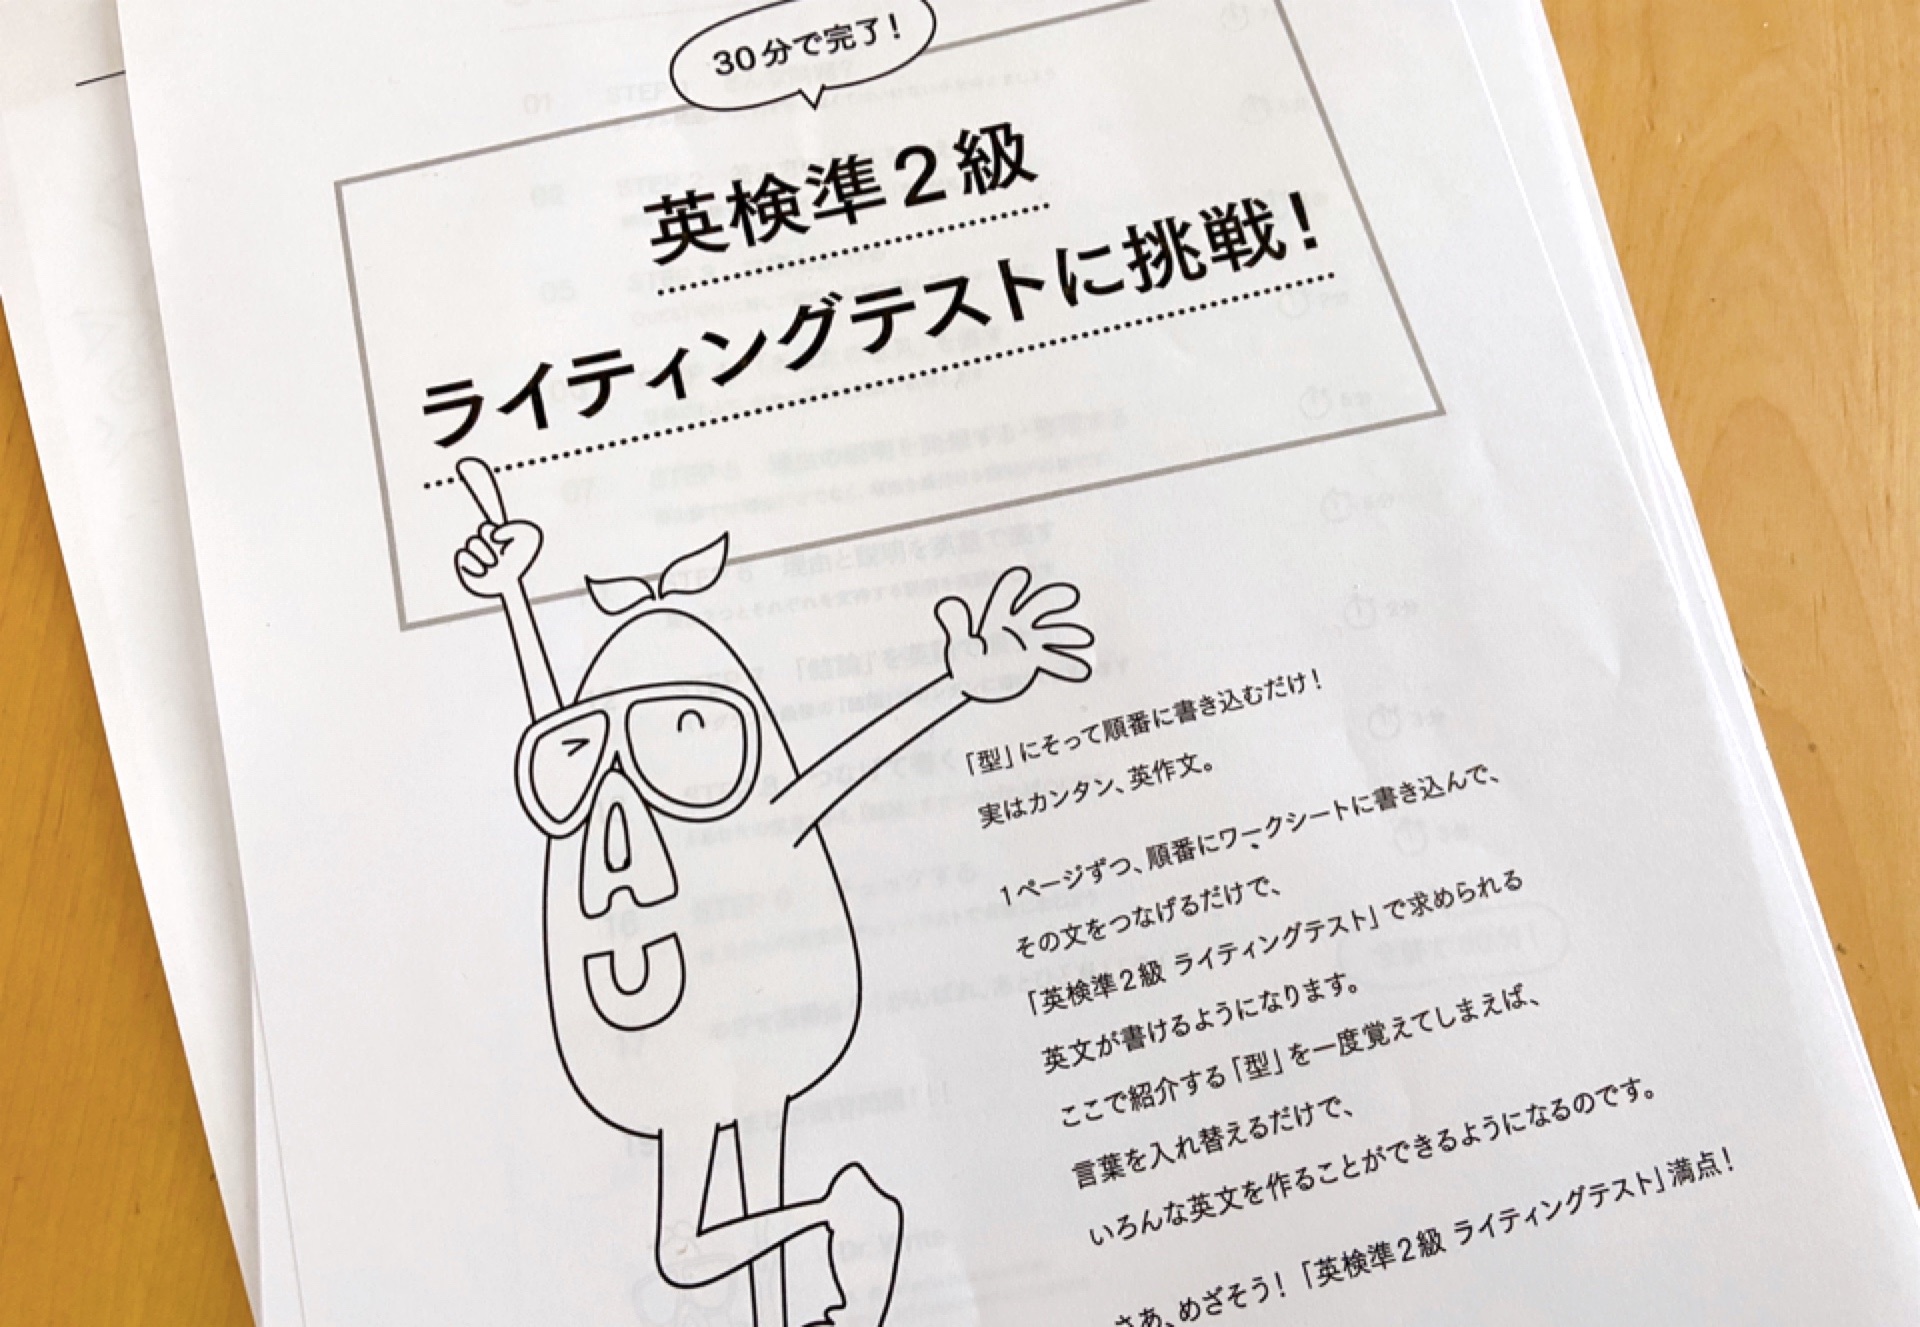 30分で完了!
英検準2級
ライティングテストに挑戦!
「型」にそって順番に書き込むだけ!
実はカンタン、英作文。
1ページずつ、順番にワークシートに書き込んで、
その文をつなげるだけで、
「英検準2級 ライティングテスト」で求められる
英文が書けるようになります。
ここで紹介する「型」を一度覚えてしまえば、
言葉を入れ替えるだけで、
いろんな英文を作ることができるようになるのです。
さあ、めざそう!「英検準2級 ライティングテスト」満点!